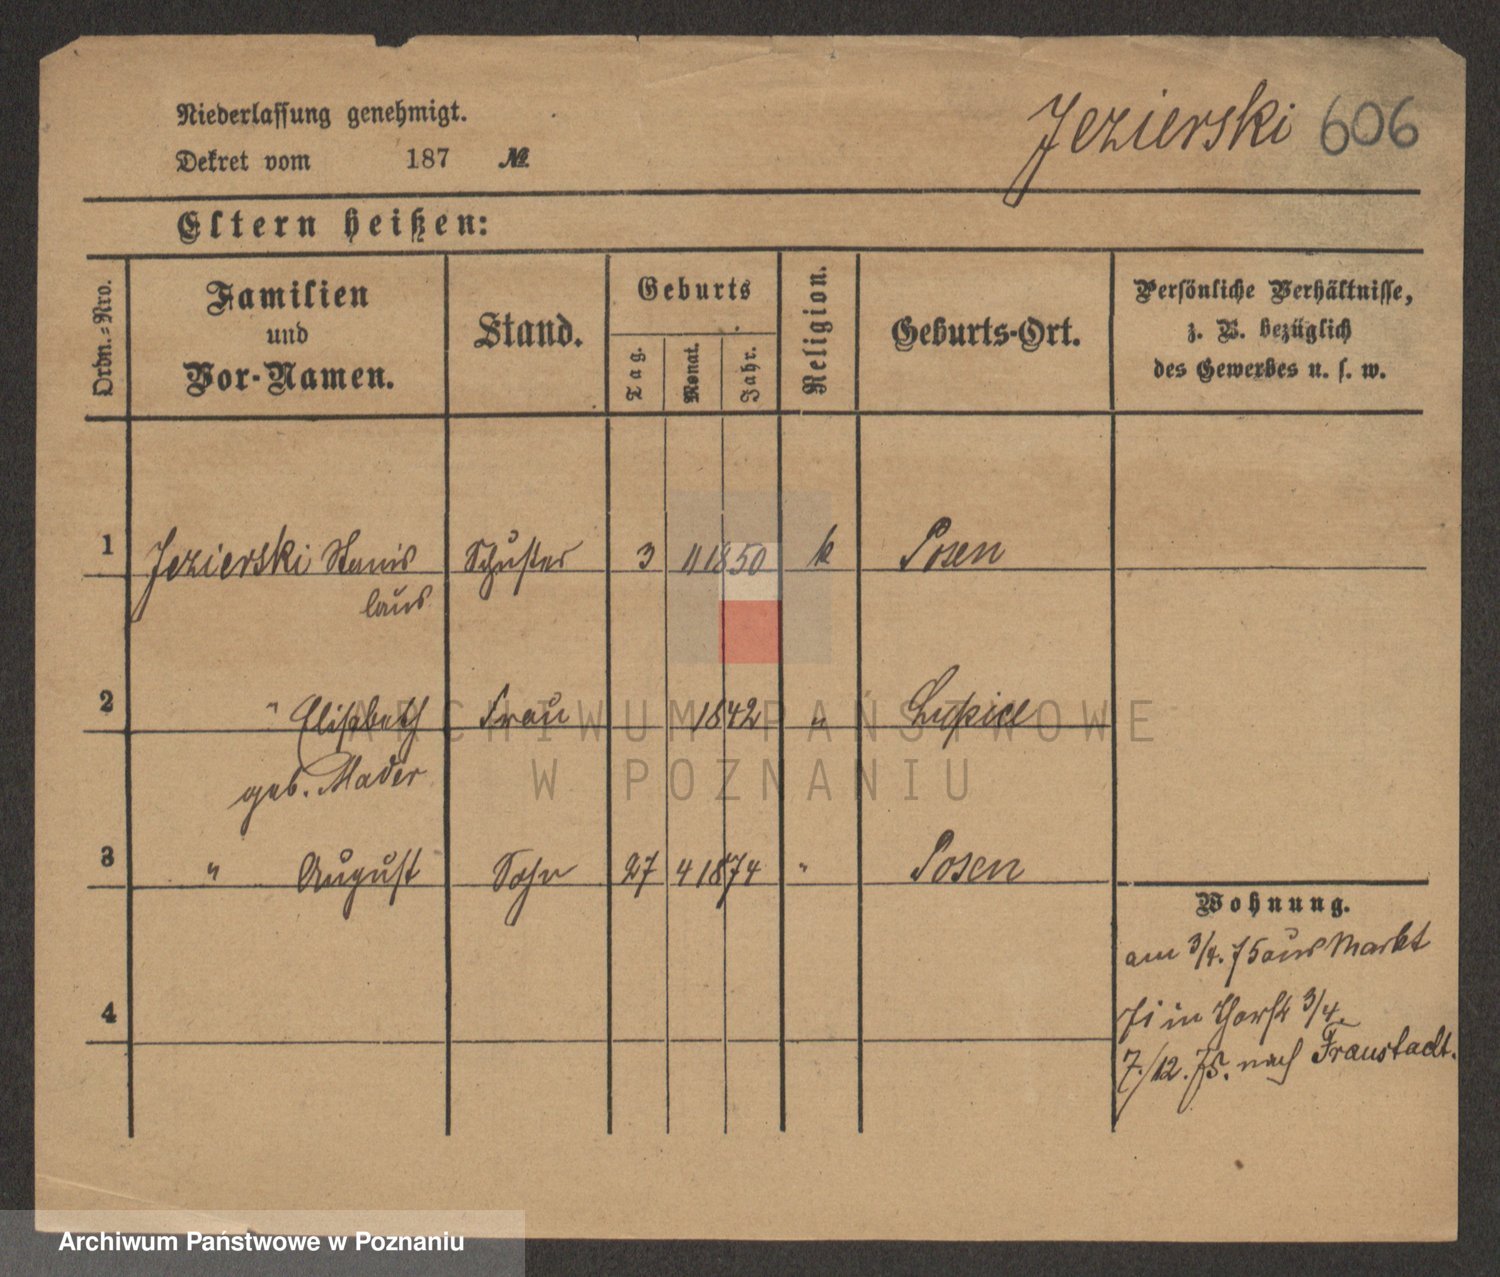 Niederlassung genehmigt.
Jezierski 606
Dekret vom 187 №
Eltern heißen:
Ordn.-Nro.
Familien
und
Vor-Namen.
Stand.
Geburts
Tag.
Monat.
Jahr.
Religion.
Geburts-Ort.
Persönliche Verhältnisse,
z. B. bezüglich
des Gewerbes u. s. w.
1 Jezierski Stanis Schuster 3 11 1850 k Posen
laus
2 " Elisabeth Frau 1842 "
geb. Mader
3 " August Sohn 27 4 1874 " Posen
Wohnung.
am 3/4. 75 aus Markt
in 3/4.
4
7./12. 75. nach Fraustadt.
ARCHIWUM PAŃSTWOWE
W POZNANIU
Archiwum Państwowe w Poznaniu